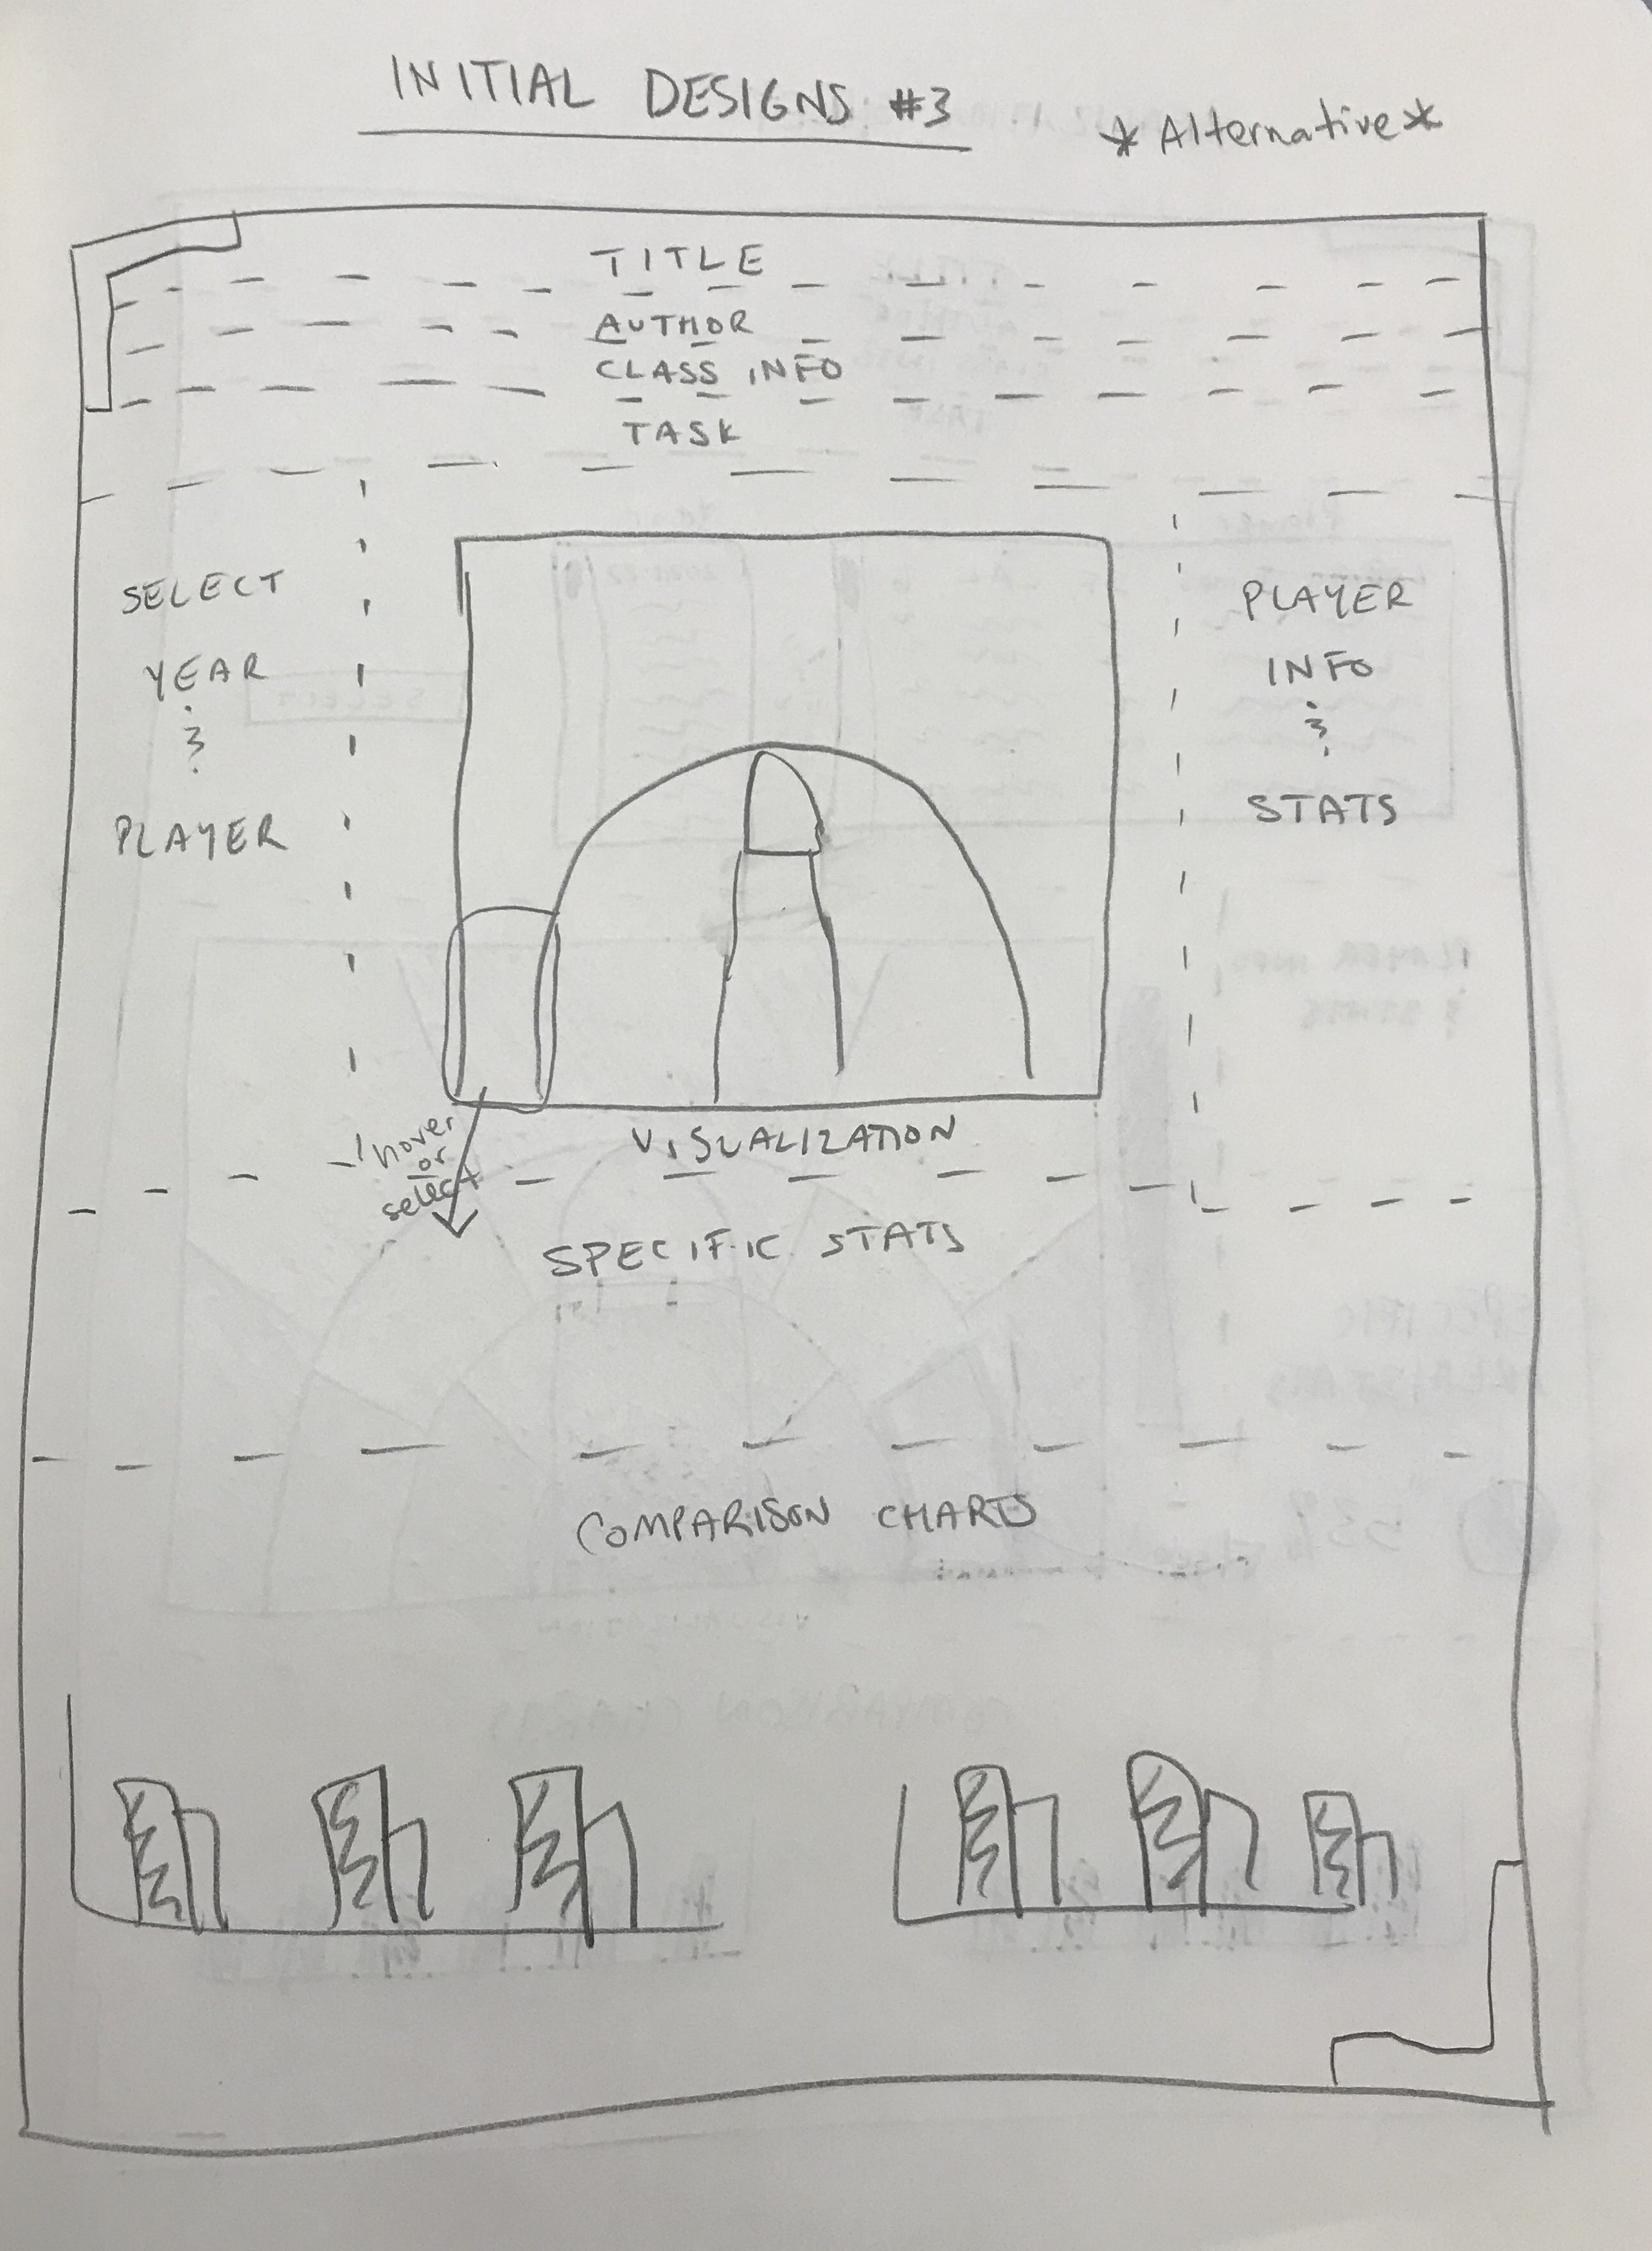 INITIAL DESIGNS #3
*Alternative*
TITLE
AUTHOR
CLASS INFO
TASK
SELECT
YEAR
&
PLAYER
PLAYER
INFO
&
STATS
VISUALIZATION
hover
or
select
SPECIFIC STATS
COMPARISON CHARTS